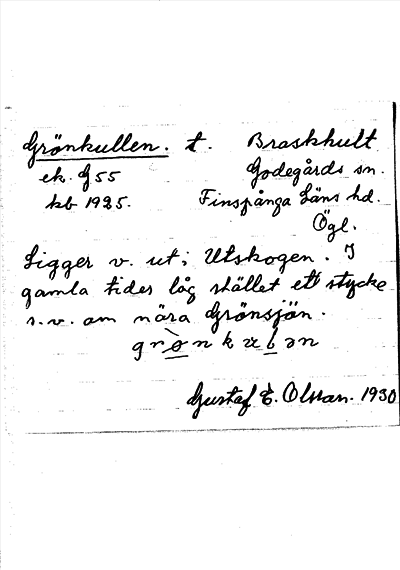 Grönkullen. t. Braskhult
ek. G 55 Godegårds sn.
kb 1925. Finspånga Läns hd.
Ögl.
Ligger v. ut i Utskogen. I
gamla tider låg stället ett stycke
s.v. om nära Grönsjön.
Gustaf E. Olsson. 1930